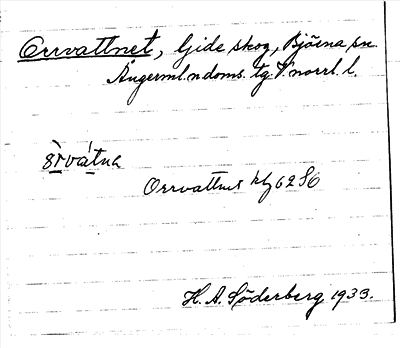 Orrvattnet, Gide skog, Björna sn.
Ångerml. n. doms. tg. V. norrl. l.
Orrvattnet 62 SO
H. A. Söderberg 1933.